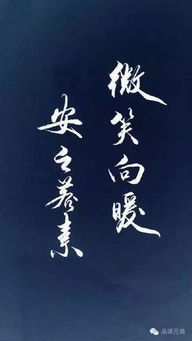 微笑向暖
安之若素
品读元曲